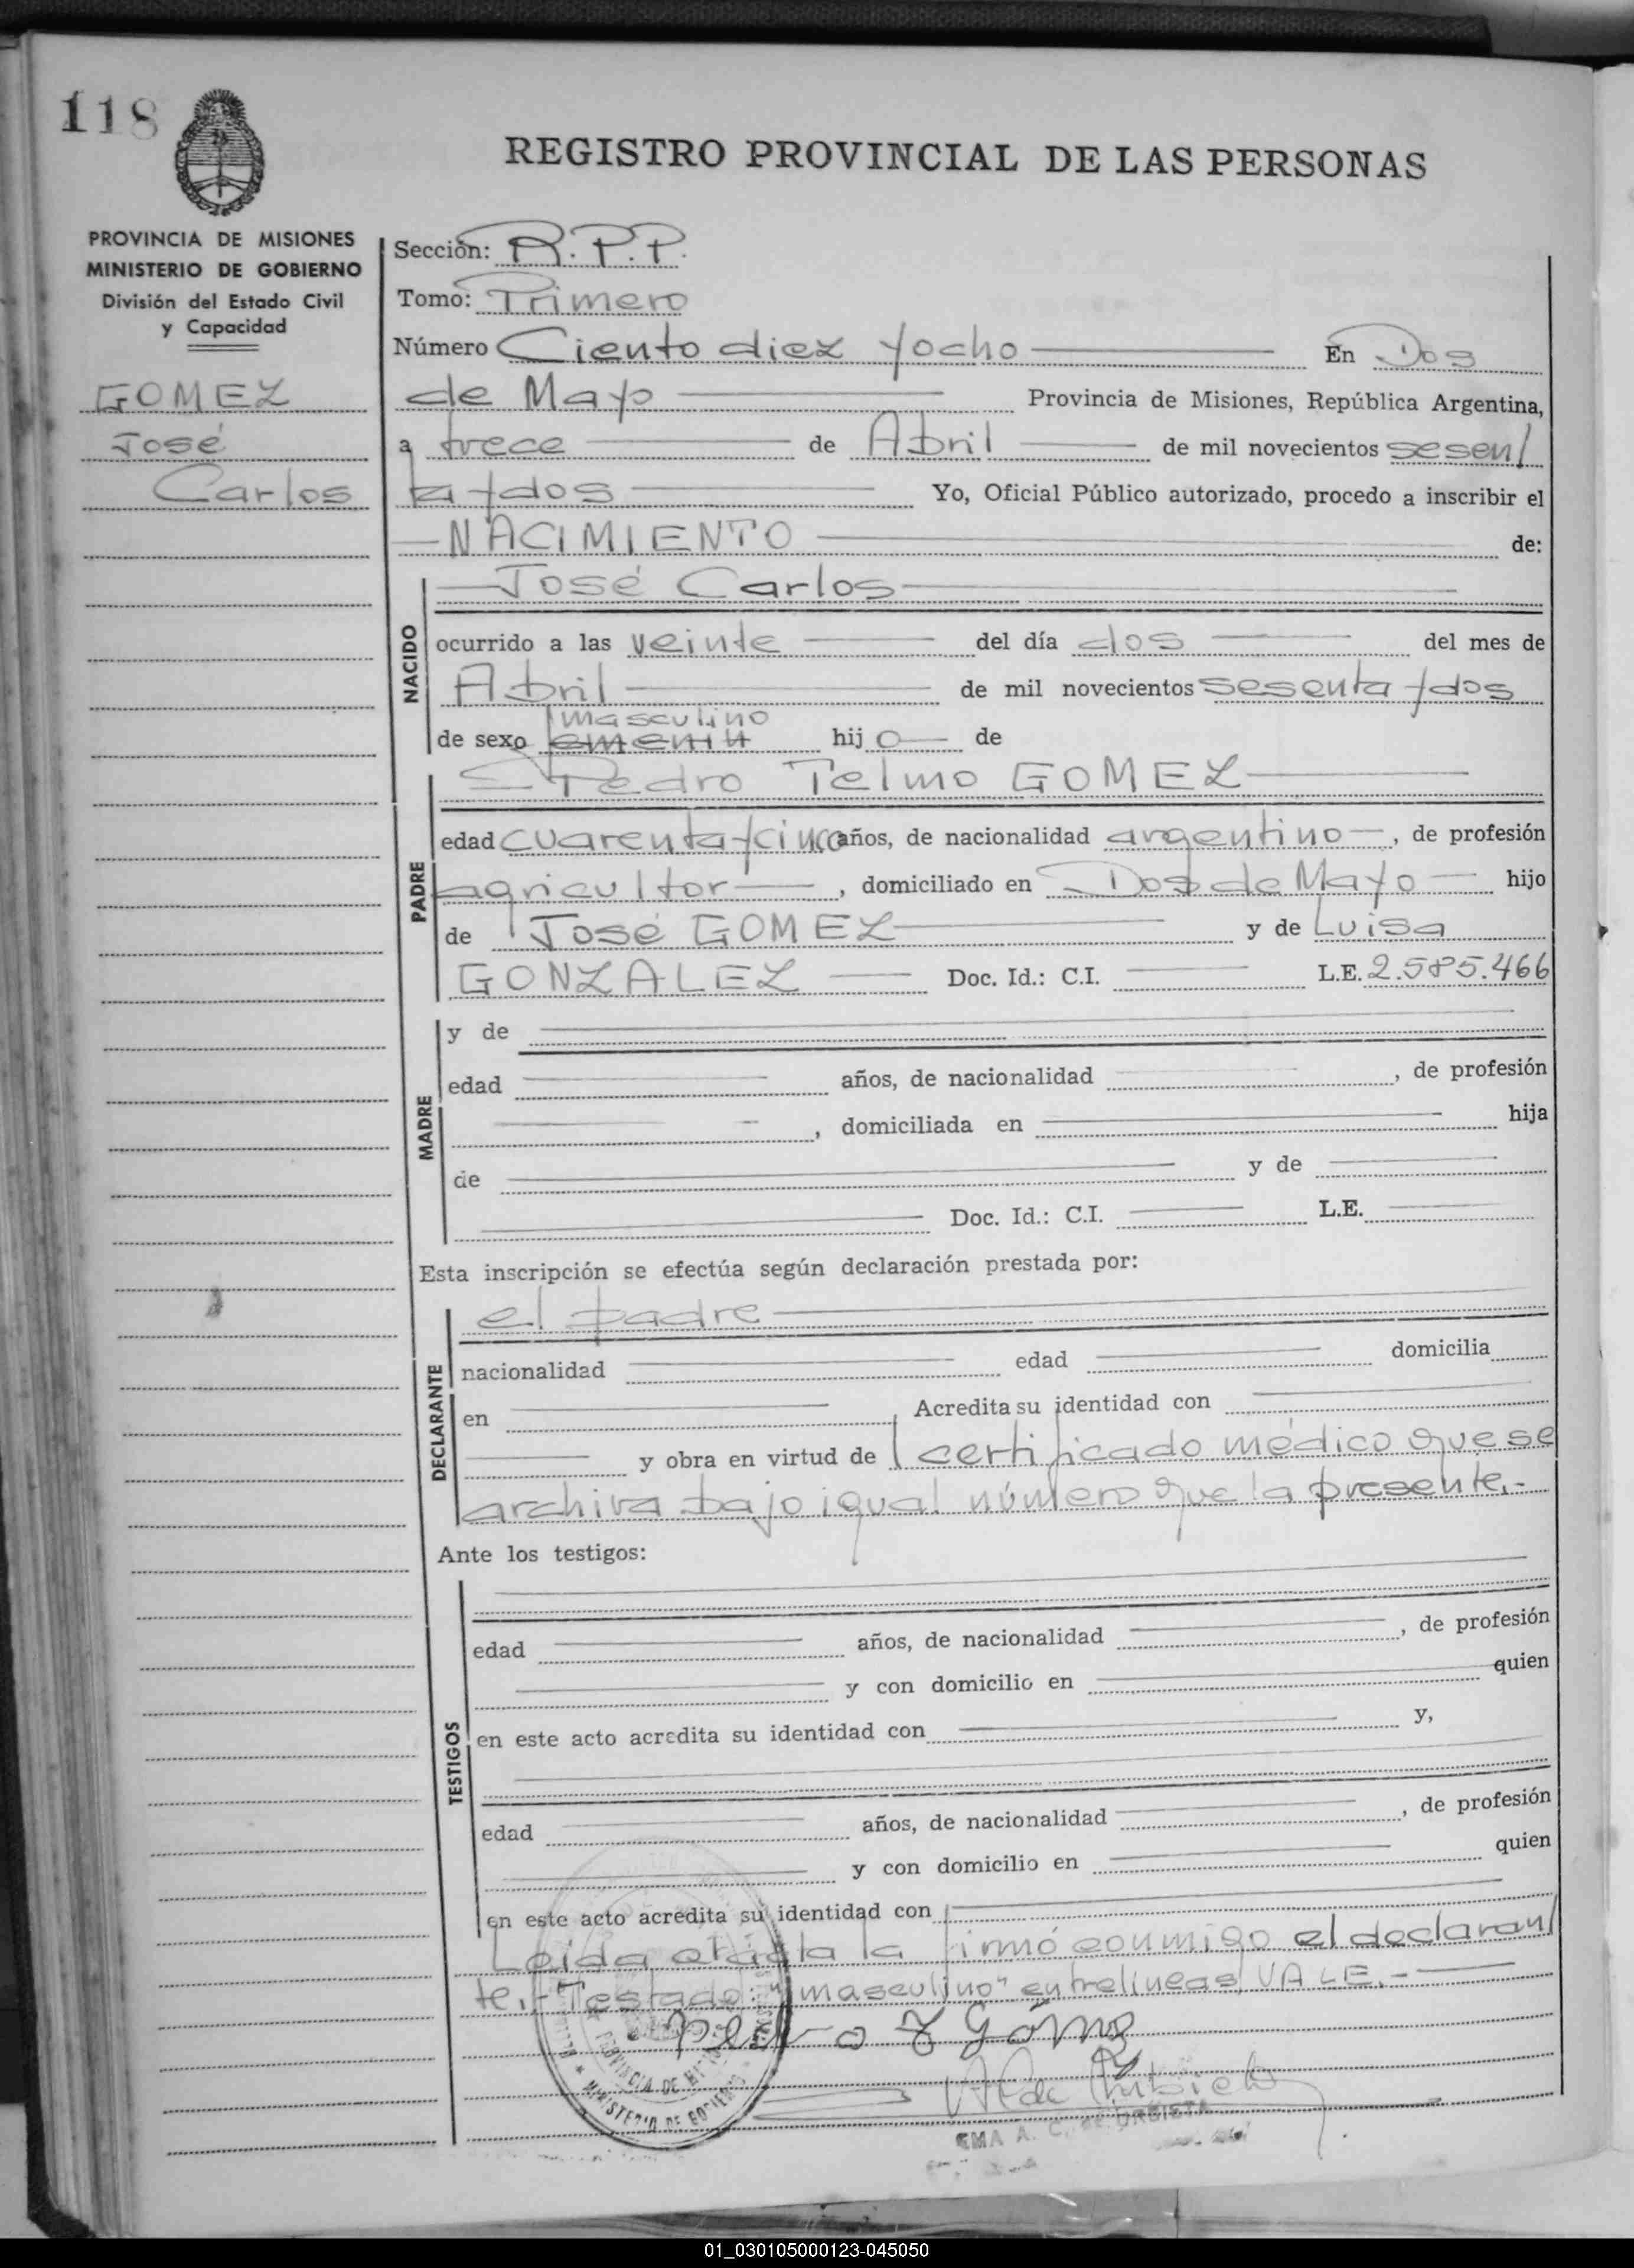 118
REGISTRO PROVINCIAL DE LAS PERSONAS
PROVINCIA DE MISIONES
MINISTERIO DE GOBIERNO
División del Estado Civil
y Capacidad
GOMEZ
José
Carlos
Sección: R.P.P.
Tomo: Primero
Número Ciento diez y ocho En Dos
de Mayo Provincia de Misiones, República Argentina,
a trece de Abril de mil novecientos sesen/
ta y dos Yo, Oficial Público autorizado, procedo a inscribir el
NACIMIENTO de:
NACIDO
José Carlos
ocurrido a las veinte del día dos del mes de
Abril de mil novecientos sesenta y dos
masculino
de sexo hijo de
PADRE
Pedro Telmo GOMEZ
edad cuarenta y cinco años, de nacionalidad argentino, de profesión
agricultor, domiciliado en Dos de Mayo hijo
de José GOMEZ y de Luisa
GONZALEZ Doc. Id.: C.I. L.E. 2.585.466
MADRE
y de
edad años, de nacionalidad , de profesión
, domiciliada en hija
de y de
Doc. Id.: C.I. L.E.
Esta inscripción se efectúa según declaración prestada por:
DECLARANTE
el padre
nacionalidad edad domicilia
en Acredita su identidad con
y obra en virtud de certificado médico que se
archiva bajo igual número que la presente.-
Ante los testigos:
TESTIGOS
edad años, de nacionalidad , de profesión
y con domicilio en quien
en este acto acredita su identidad con y,
edad años, de nacionalidad , de profesión
y con domicilio en quien
en este acto acredita su identidad con
Leida el acta la firmó conmigo el declaran/
te.- Testado: "masculino" entrelineas, VALE.-
Pedro T Gomez
PROVINCIA DE MISIONES
MINISTERIO DE GOBIERNO
EMA A. C. DE URBIETA
01_030105000123-045050